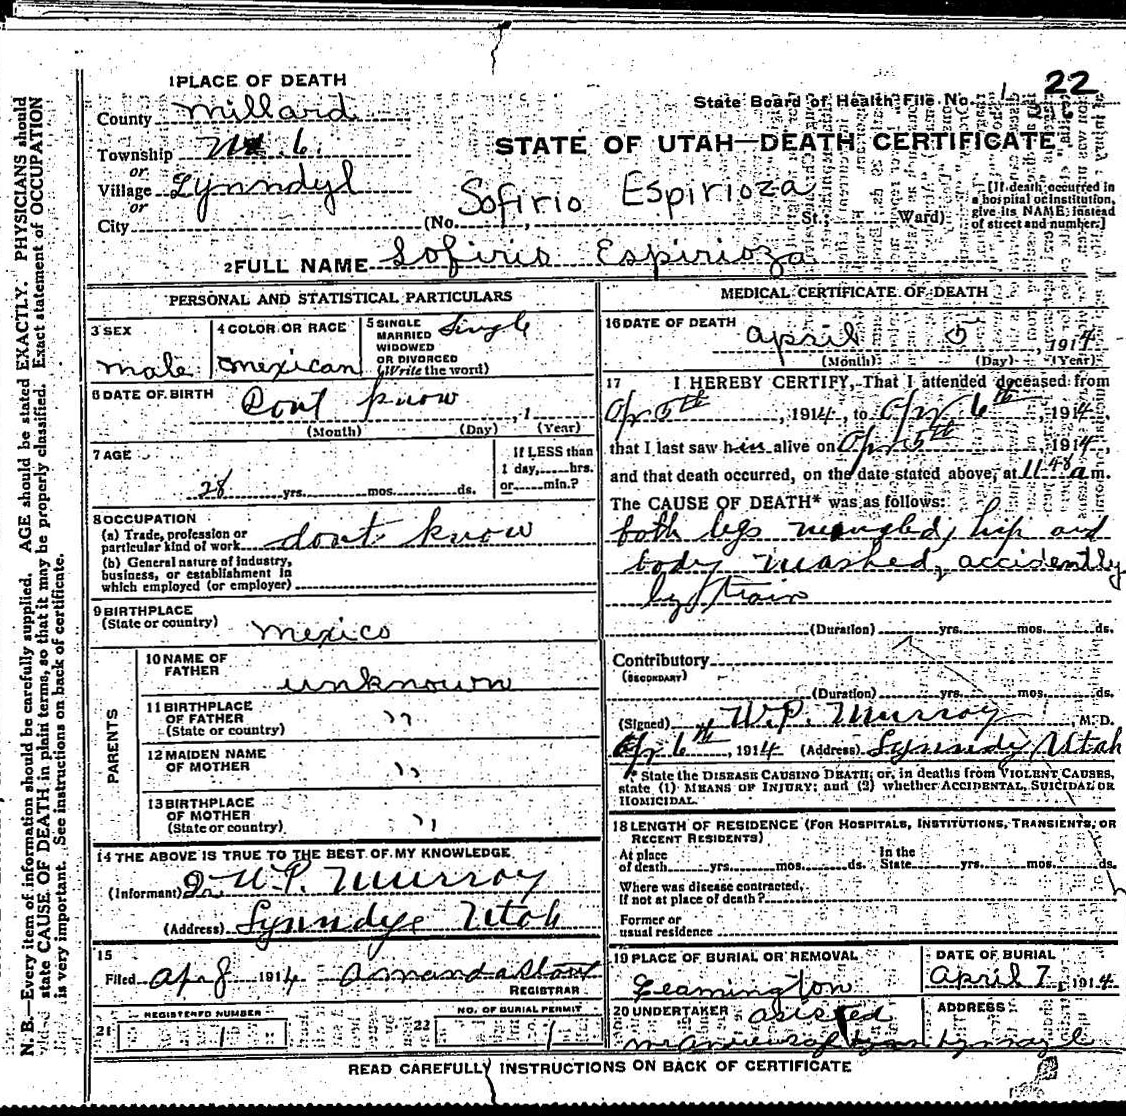 22
1 PLACE OF DEATH
State Board of Health File No.
County Millard
STATE OF UTAH—DEATH CERTIFICATE
Township 6.
or
Village Lynndyl
or
Sofirio Espirioza
City (No. St.; Ward)
[If death occurred in a hospital or institution, give its NAME instead of street and number.]
2 FULL NAME Sofirio Espirioza
PERSONAL AND STATISTICAL PARTICULARS
3 SEX male
4 COLOR OR RACE mexican
5 SINGLE MARRIED WIDOWED OR DIVORCED (Write the word) Single
6 DATE OF BIRTH Dont know , 1
(Month) (Day) (Year)
7 AGE
28 yrs. mos. ds.
If LESS than 1 day, hrs. or min.?
8 OCCUPATION
(a) Trade, profession or particular kind of work dont know
(b) General nature of industry, business, or establishment in which employed (or employer)
9 BIRTHPLACE
(State or country) mexico
PARENTS
10 NAME OF FATHER unknown
11 BIRTHPLACE OF FATHER (State or country) ''
12 MAIDEN NAME OF MOTHER ''
13 BIRTHPLACE OF MOTHER (State or country) ''
14 THE ABOVE IS TRUE TO THE BEST OF MY KNOWLEDGE
(Informant) Dr W.P. Murroy
(Address) Lynndyl Utah
15
Filed Apr 8 1914 Amanda
REGISTRAR
21 REGISTERED NUMBER 1
22 NO. OF BURIAL PERMIT 1
MEDICAL CERTIFICATE OF DEATH
16 DATE OF DEATH
April 5 , 1914
(Month) (Day) (Year)
17 I HEREBY CERTIFY, That I attended deceased from
Apr 5th , 1914, to Apr 6th 1914,
that I last saw him alive on Apr 5th 1914,
and that death occurred, on the date stated above, at 11 48 a m.
The CAUSE OF DEATH* was as follows:
both legs mangled, hip and
body mashed, accidently
by train
(Duration) yrs. mos. ds.
Contributory
(SECONDARY)
(Duration) yrs. mos. ds.
(Signed) W.P. Murroy , M. D.
Apr 6th , 1914 (Address) Lynndyl Utah
* State the DISEASE CAUSING DEATH; or, in deaths from VIOLENT CAUSES,
state (1) MEANS OF INJURY; and (2) whether ACCIDENTAL, SUICIDAL OR
HOMICIDAL.
18 LENGTH OF RESIDENCE (FOR HOSPITALS, INSTITUTIONS, TRANSIENTS, OR
RECENT RESIDENTS)
At place of death yrs. mos. ds. In the State yrs. mos. ds.
Where was disease contracted,
if not at place of death?
Former or
usual residence
19 PLACE OF BURIAL OR REMOVAL
Leamington
DATE OF BURIAL
April 7, 1914
20 UNDERTAKER assisted
ADDRESS
READ CAREFULLY INSTRUCTIONS ON BACK OF CERTIFICATE
N. B.—Every item of information should be carefully supplied. AGE should be stated EXACTLY. PHYSICIANS should
state CAUSE OF DEATH in plain terms, so that it may be properly classified. Exact statement of OCCUPATION
is very important. See instructions on back of certificate.